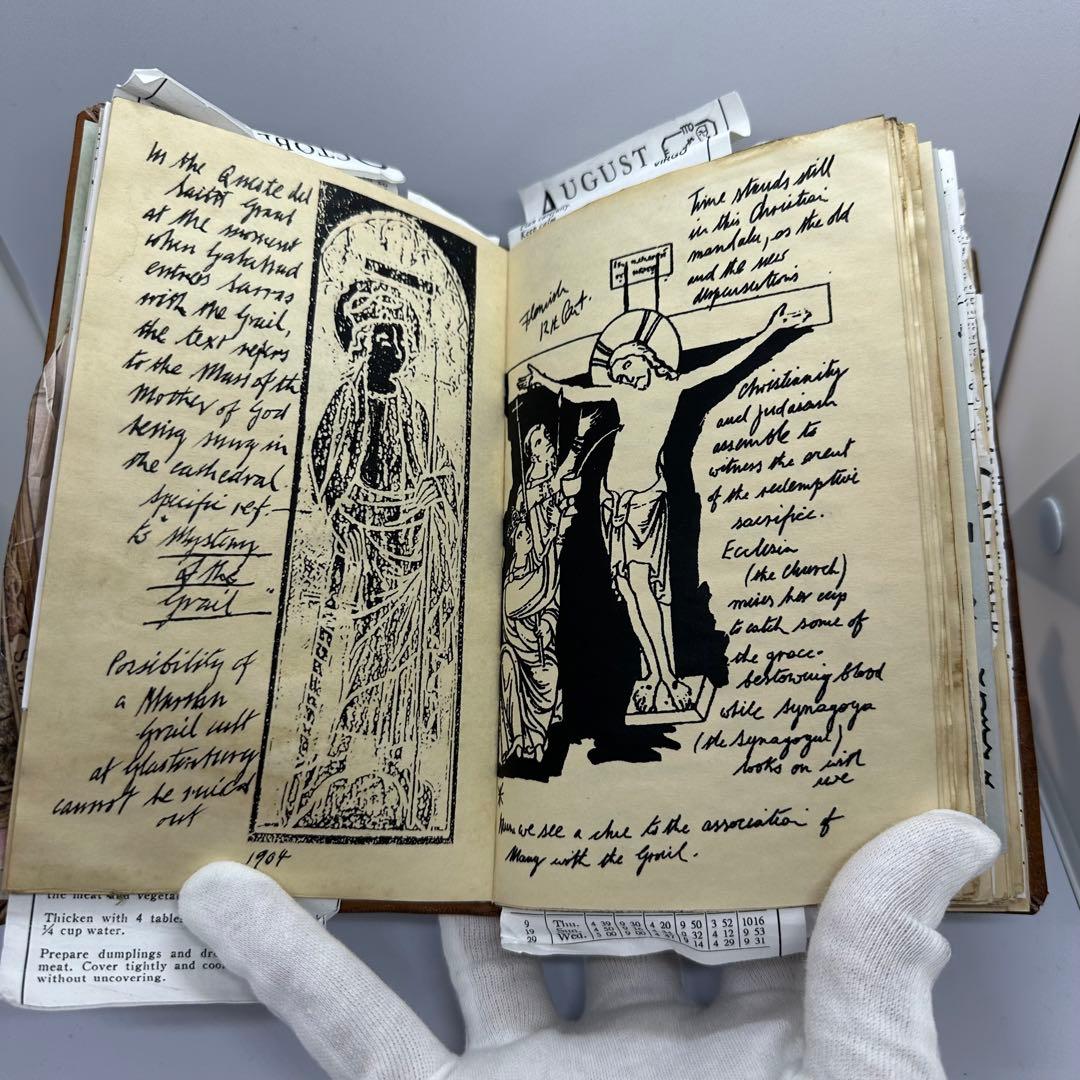 In the Queste del
Saint Graal
at the moment
when Galahad
enters Sarras
with the Grail,
the text refers
to the Mass of the
Mother of God
being sung in
the cathedral
specific ref.
to "Mystery
of the
Grail"
Possibility of
a Marian
Grail cult
at Glastonbury
cannot be ruled
out
1904
AUGUST
VIRGO
Time stands still
in this Christian
mandala, as the old
and the new
dispensations
Flemish
Christianity
and Judaism
assemble to
witness the event
of the redemptive
sacrifice.
Ecclesia
(the Church)
raises her cup
to catch some of
the grace-
bestowing blood
while Synagoga
(the Synagogue)
looks on with
we see a clue to the association of
Mary with the Grail.
the meat and
Thicken with 4
¼ cup water.
Prepare dumplings and
meat. Cover tightly and
without uncovering.
9 Thu. 4 39 9 30 4 20 9 50 3 52 1016
19 Sun. 9 32 4 12 9 53
29 Wed. 9 14 4 29 9 31